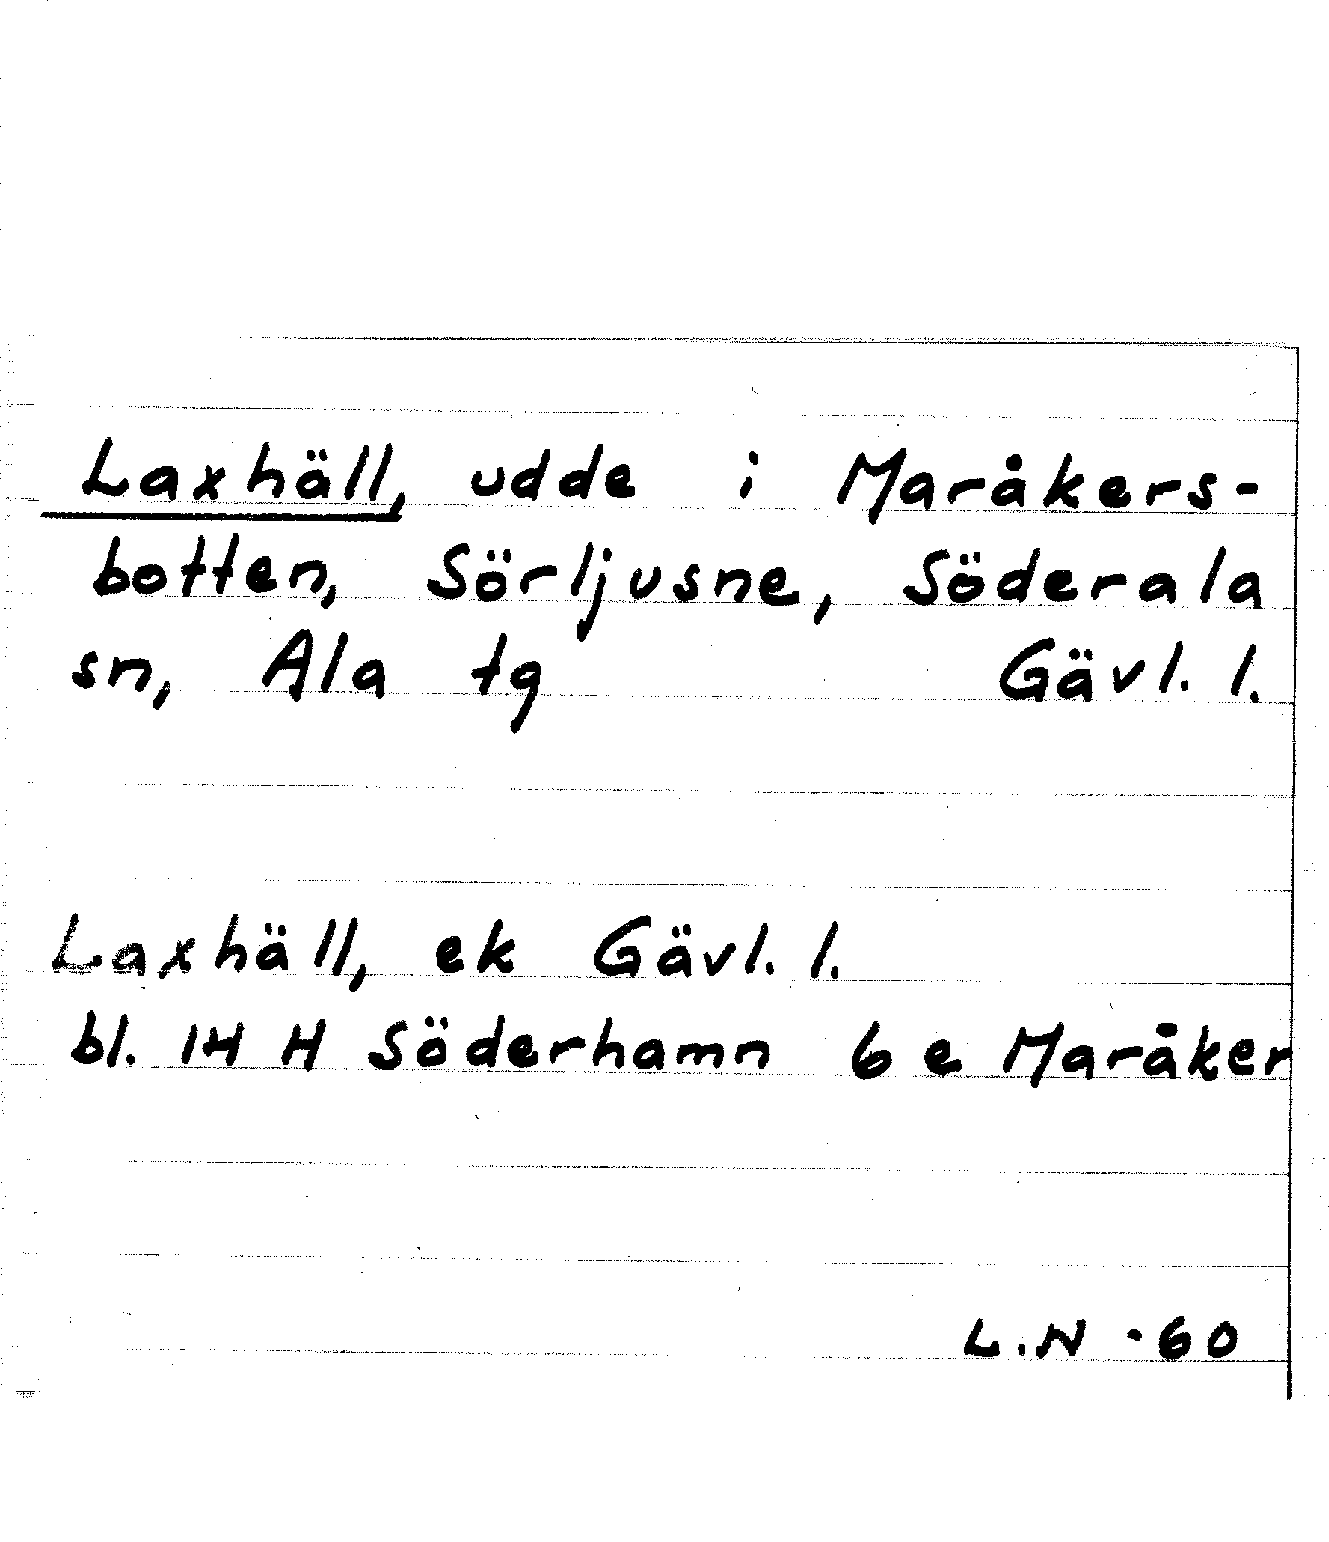 Laxhäll, udde i Maråkers-
botten, Sörljusne, Söderala
sn, Ala tg Gävl. l.
Laxhäll, ek Gävl. l.
bl. 14 H Söderhamn 6 e Maråker
L.N -60